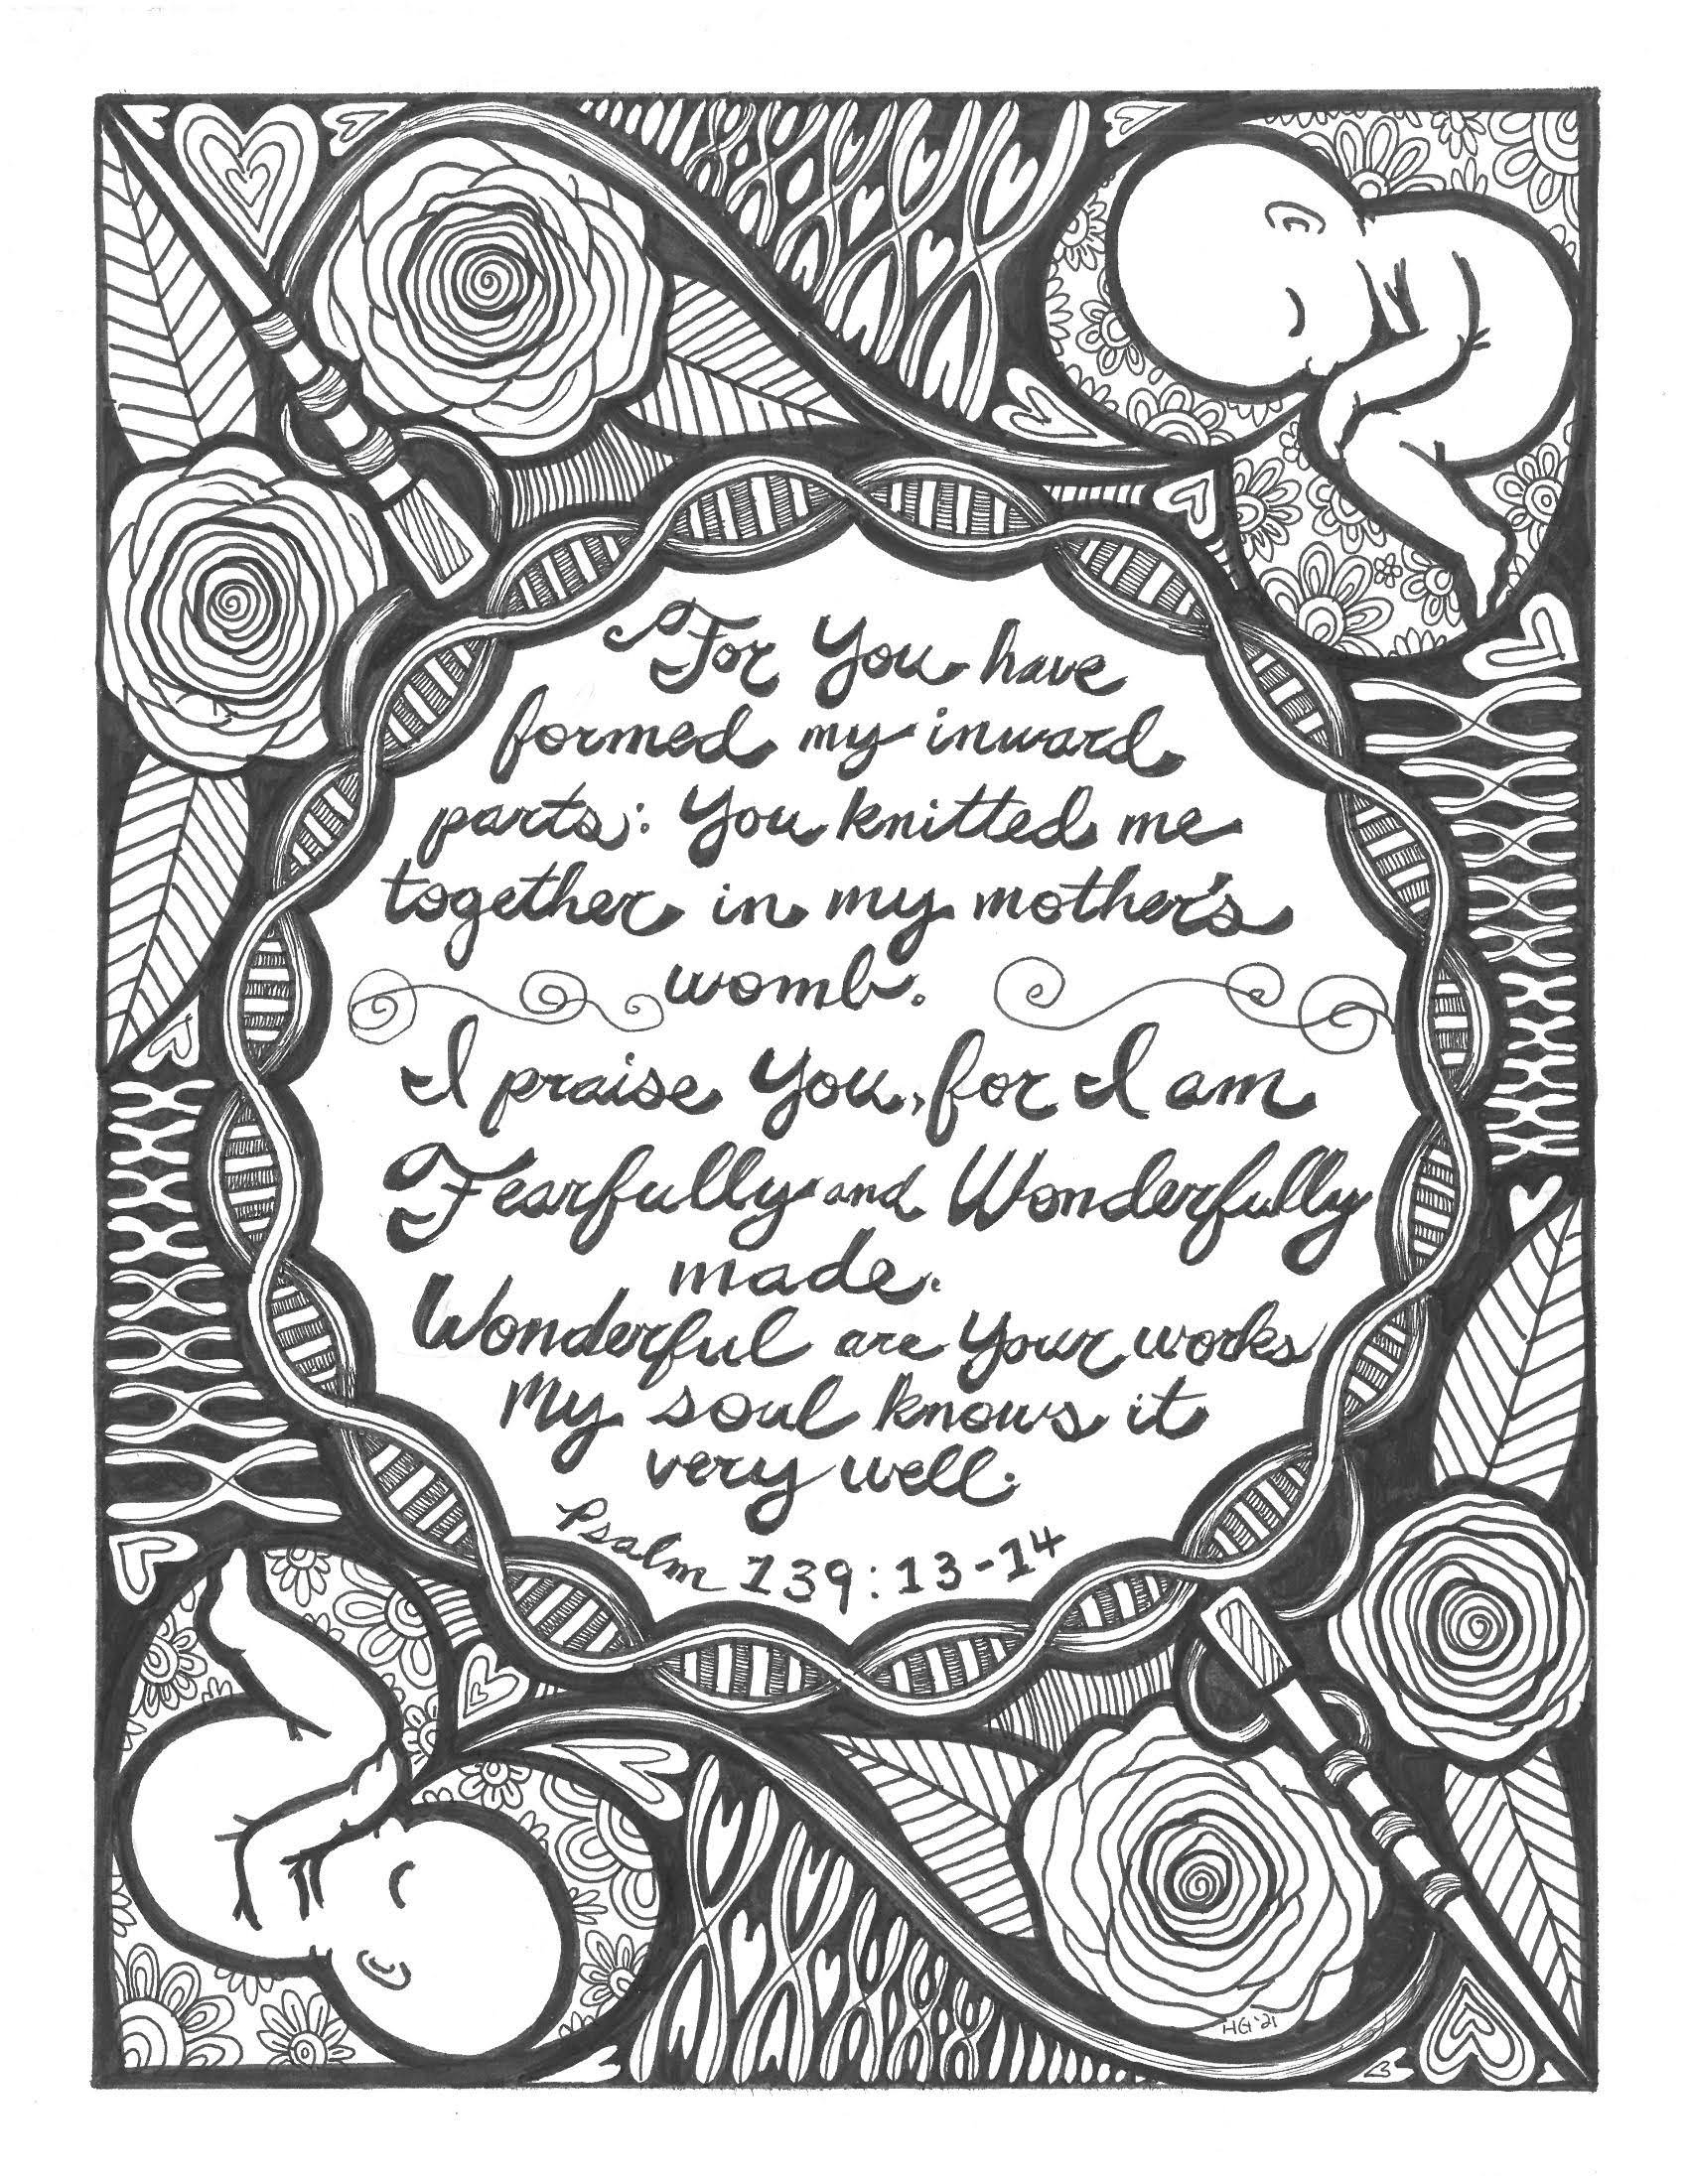 For You have
formed my inward
parts: You knitted me
together in my mother's
womb.
I praise You, for I am
Fearfully and Wonderfully
made.
Wonderful are Your works
My soul knows it
very well.
Psalm 139:13-14
HG'21